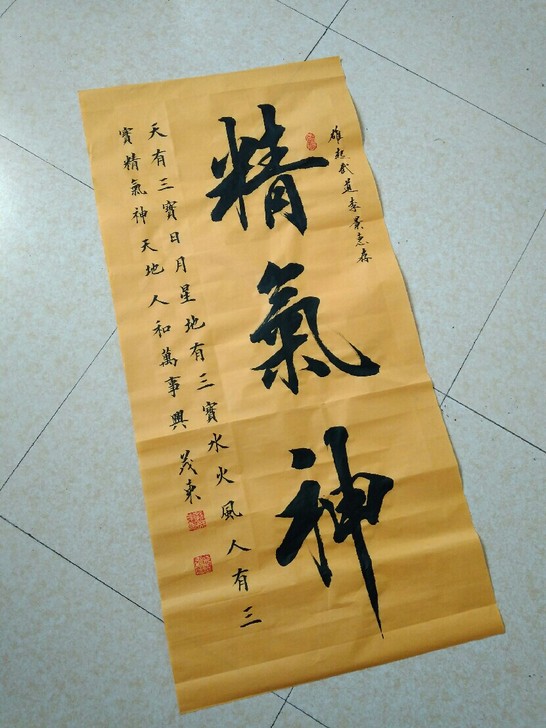 雄起武道李景惠存
精氣神
天有三寶日月星地有三寶水火風人有三
寶精氣神天地人和萬事興 茂東